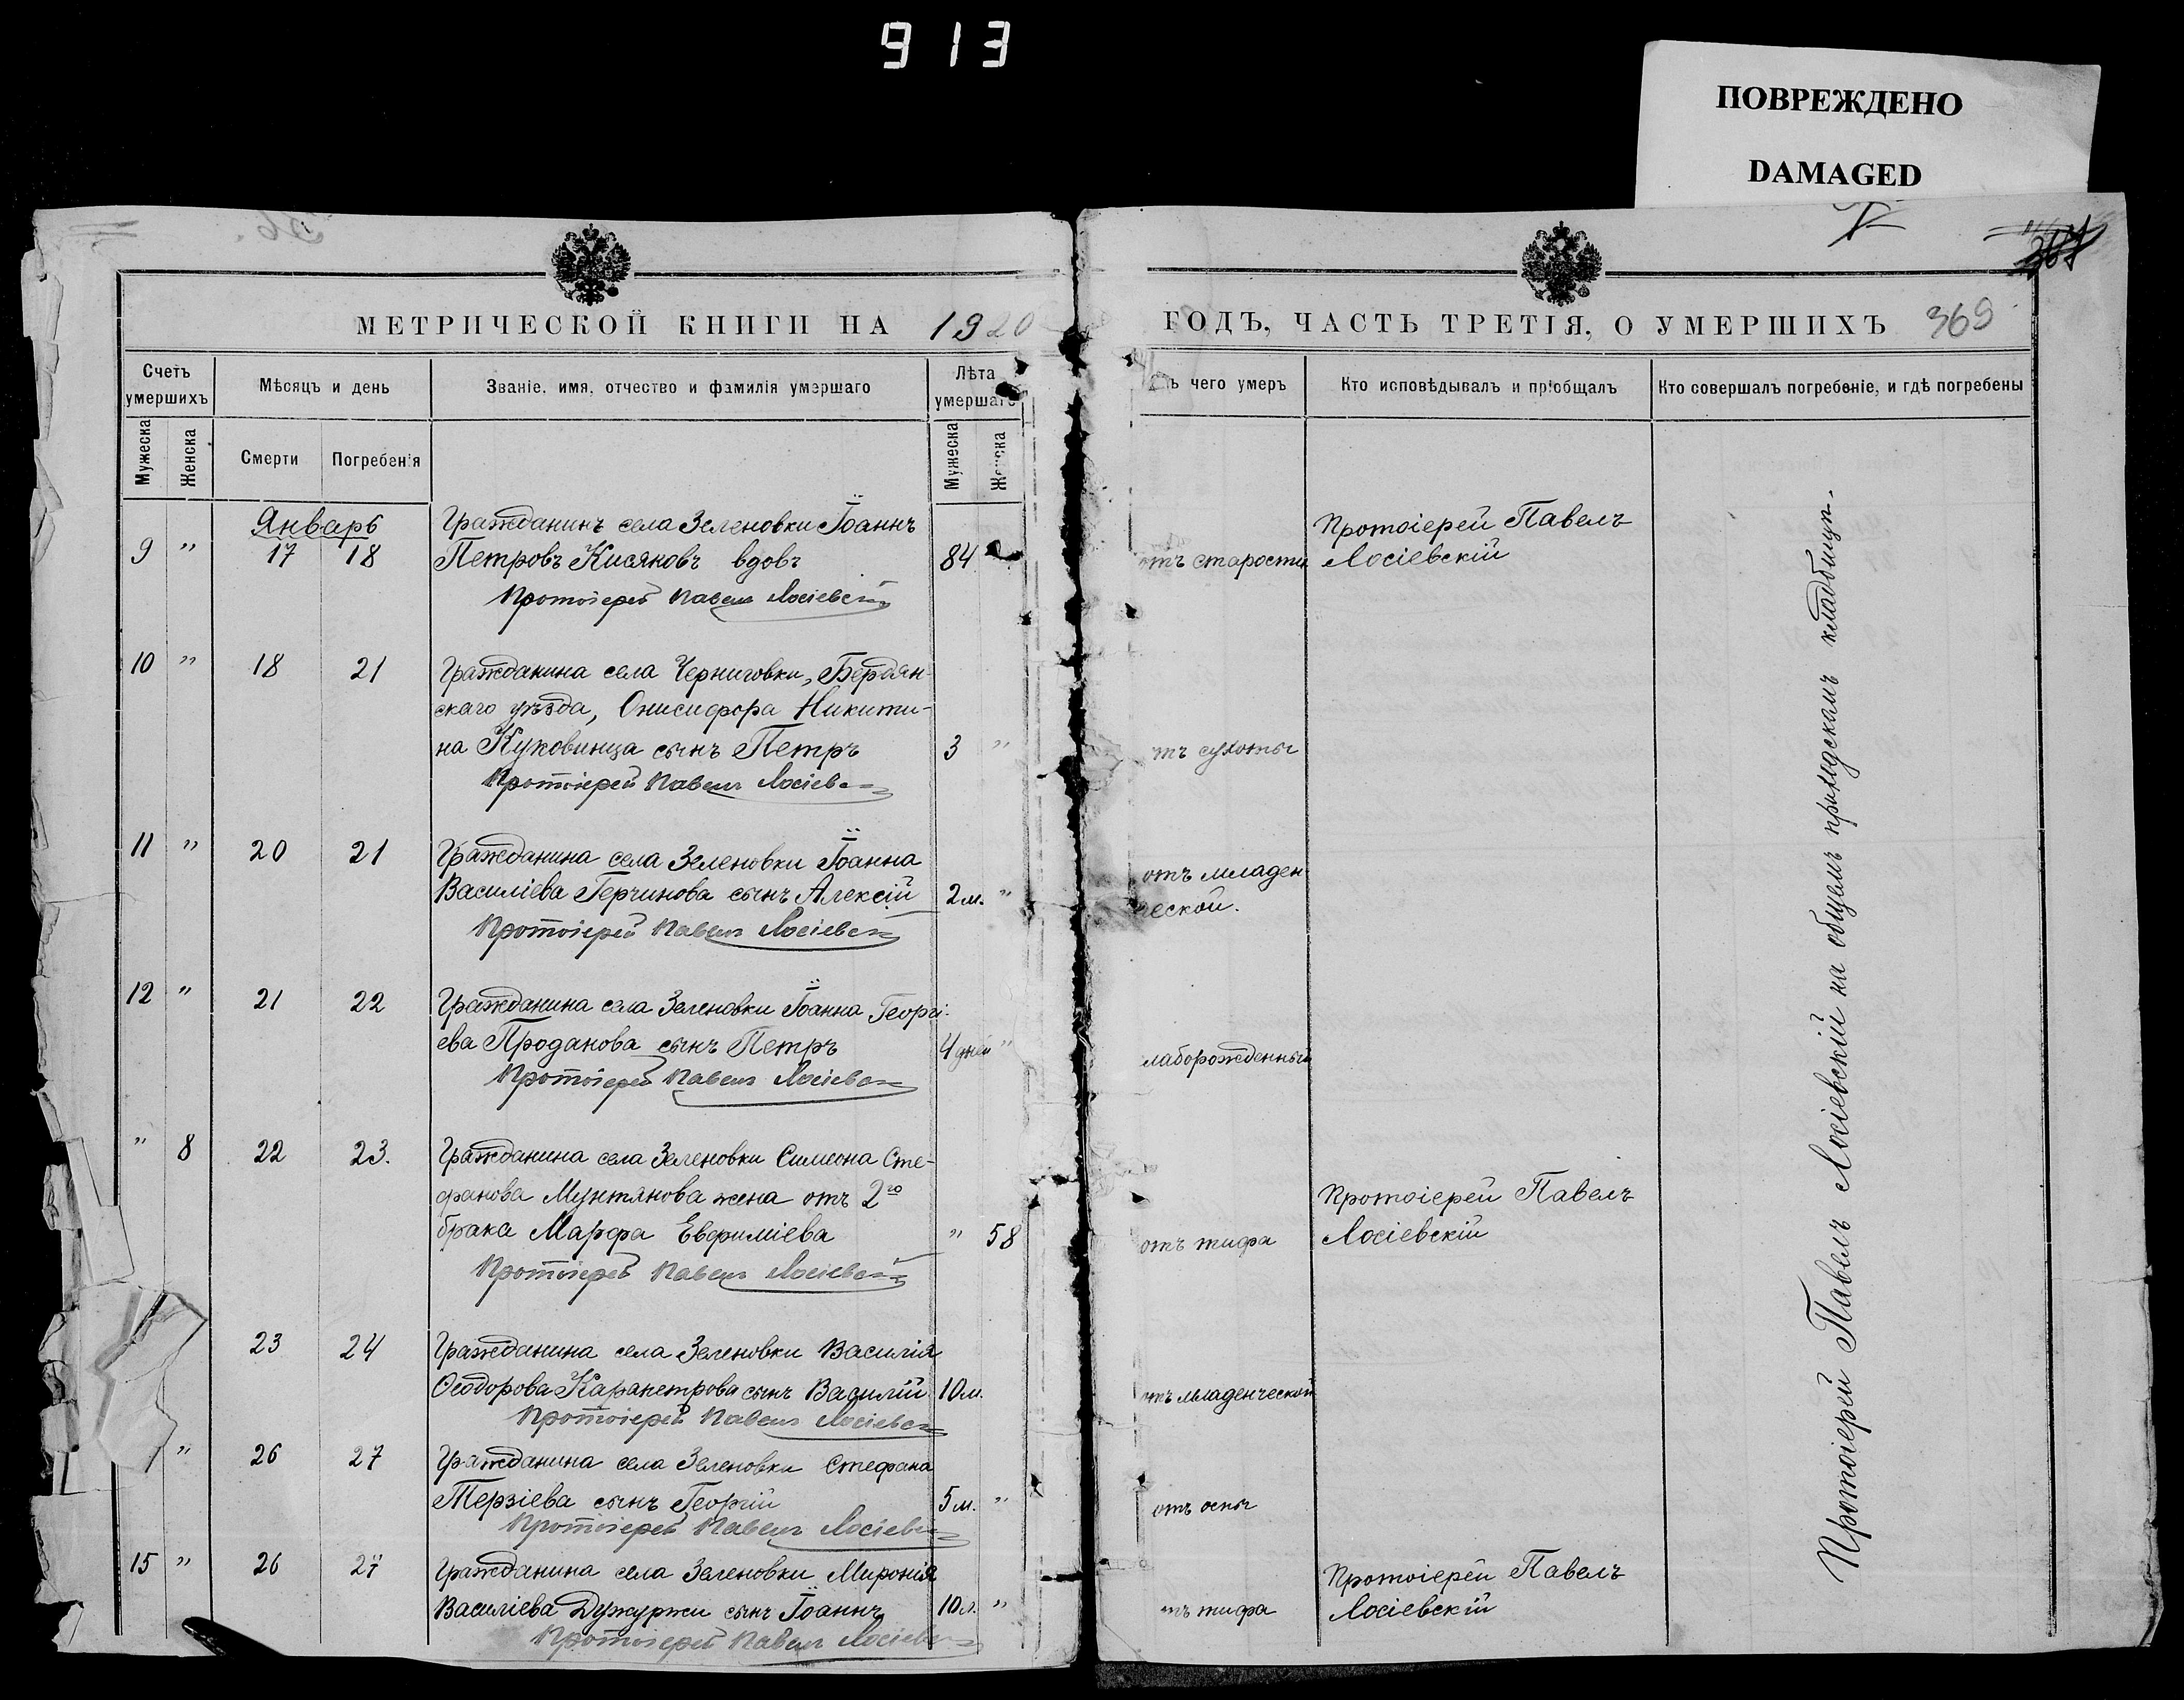 913
ПОВРЕЖДЕНО
DAMAGED
МЕТРИЧЕСКОЙ КНИГИ НА 1920
ГОДЪ, ЧАСТЬ ТРЕТІЯ, О УМЕРШИХЪ 369
Счетъ умершихъ
Мѣсяцъ и день
Званіе, имя, отчество и фамилія умершаго
Лѣта умершаго
чего умеръ
Кто исповѣдывалъ и пріобщалъ
Кто совершалъ погребеніе, и гдѣ погребены
Мужеска
Женска
Смерти
Погребенія
Мужеска
Женска
Январь
Гражданинъ села Зеленовки Іоаннъ
Протоіерей Павелъ
9 " 17 18 Петровъ Кисяковъ вдовъ 84 отъ старости Лосіевскій
Протоіерей Павелъ Лосіевскій
10 " 18 21 Гражданина села Черниговки, Бердян-
скаго уѣзда, Онисифора Никити-
на Куковинца сынъ Петръ 3 " тъ сухоты
Протоіерей Павелъ Лосіевскій
11 " 20 21 Гражданина села Зеленовки Іоанна
отъ младен
Василіева Герчинова сынъ Алексій 2 м. " ческой.
Протоіерей Павелъ Лосіевскій
12 " 21 22 Гражданина села Зеленовки Іоанна Георгі-
ева Проданова сынъ Петръ 4 дней " лаборожденный
Протоіерей Павелъ Лосіевскій
" 8 22 23. Гражданина села Зеленовки Симеона Сте-
фанова Мунтянова жена отъ 2го
Протоіерей Павелъ
брака Марфа Евфиміева " 58 отъ тифа Лосіевскій
Протоіерей Павелъ Лосіевскій
23 24 Гражданина села Зеленовки Василія
Ѳеодорова Карапетрова сынъ Василій 10 м. отъ младенческой
Протоіерей Павелъ Лосіевскій
" 26 27 Гражданина села Зеленовки Стефана
Терзіева сынъ Георгій 5 м. " отъ оспы
Протоіерей Павелъ Лосіевскій
15 " 26 27 Гражданина села Зеленовки Миронія
Протоіерей Павелъ
Василіева Дужуржи сынъ Іоаннъ 10 л. " тъ тифа Лосіевскій
Протоіерей Павелъ Лосіевскій
Протоіерей Павелъ Лосіевскій на общемъ приходскомъ кладбищѣ.